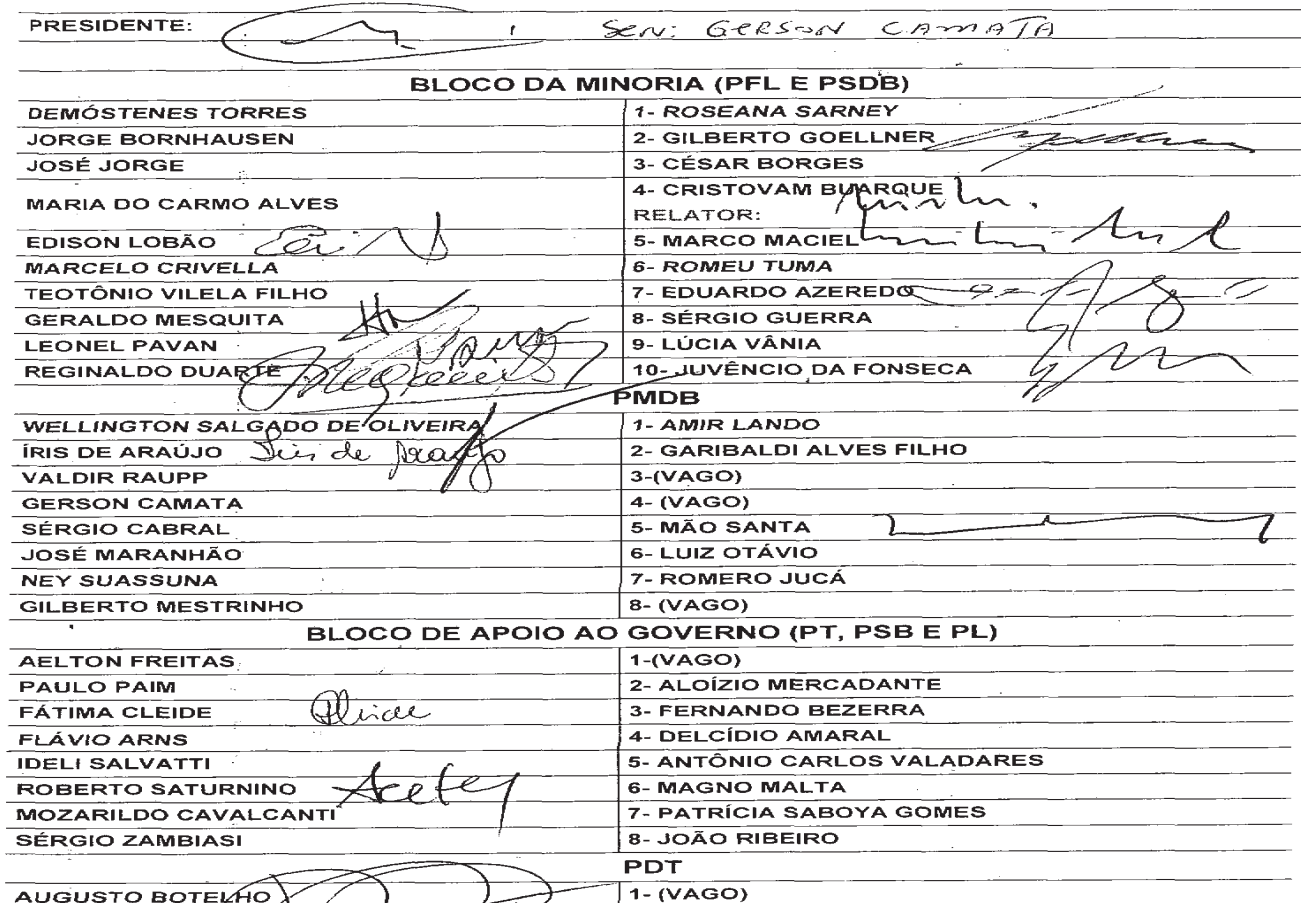 PRESIDENTE: Sen: GERSON CAMATA
BLOCO DA MINORIA (PFL E PSDB)
DEMÓSTENES TORRES 1- ROSEANA SARNEY
JORGE BORNHAUSEN 2- GILBERTO GOELLNER
JOSÉ JORGE 3- CÉSAR BORGES
MARIA DO CARMO ALVES 4- CRISTOVAM BUARQUE
RELATOR:
EDISON LOBÃO 5- MARCO MACIEL
MARCELO CRIVELLA 6- ROMEU TUMA
TEOTÔNIO VILELA FILHO 7- EDUARDO AZEREDO
GERALDO MESQUITA 8- SÉRGIO GUERRA
LEONEL PAVAN 9- LÚCIA VÂNIA
REGINALDO DUARTE 10- JUVÊNCIO DA FONSECA
PMDB
WELLINGTON SALGADO DE OLIVEIRA 1- AMIR LANDO
ÍRIS DE ARAÚJO Iris de Araújo 2- GARIBALDI ALVES FILHO
VALDIR RAUPP 3-(VAGO)
GERSON CAMATA 4- (VAGO)
SÉRGIO CABRAL 5- MÃO SANTA
JOSÉ MARANHÃO 6- LUIZ OTÁVIO
NEY SUASSUNA 7- ROMERO JUCÁ
GILBERTO MESTRINHO 8- (VAGO)
BLOCO DE APOIO AO GOVERNO (PT, PSB E PL)
AELTON FREITAS 1-(VAGO)
PAULO PAIM 2- ALOÍZIO MERCADANTE
FÁTIMA CLEIDE 3- FERNANDO BEZERRA
FLÁVIO ARNS 4- DELCÍDIO AMARAL
IDELI SALVATTI 5- ANTÔNIO CARLOS VALADARES
ROBERTO SATURNINO 6- MAGNO MALTA
MOZARILDO CAVALCANTI 7- PATRÍCIA SABOYA GOMES
SÉRGIO ZAMBIASI 8- JOÃO RIBEIRO
PDT
AUGUSTO BOTELHO 1- (VAGO)